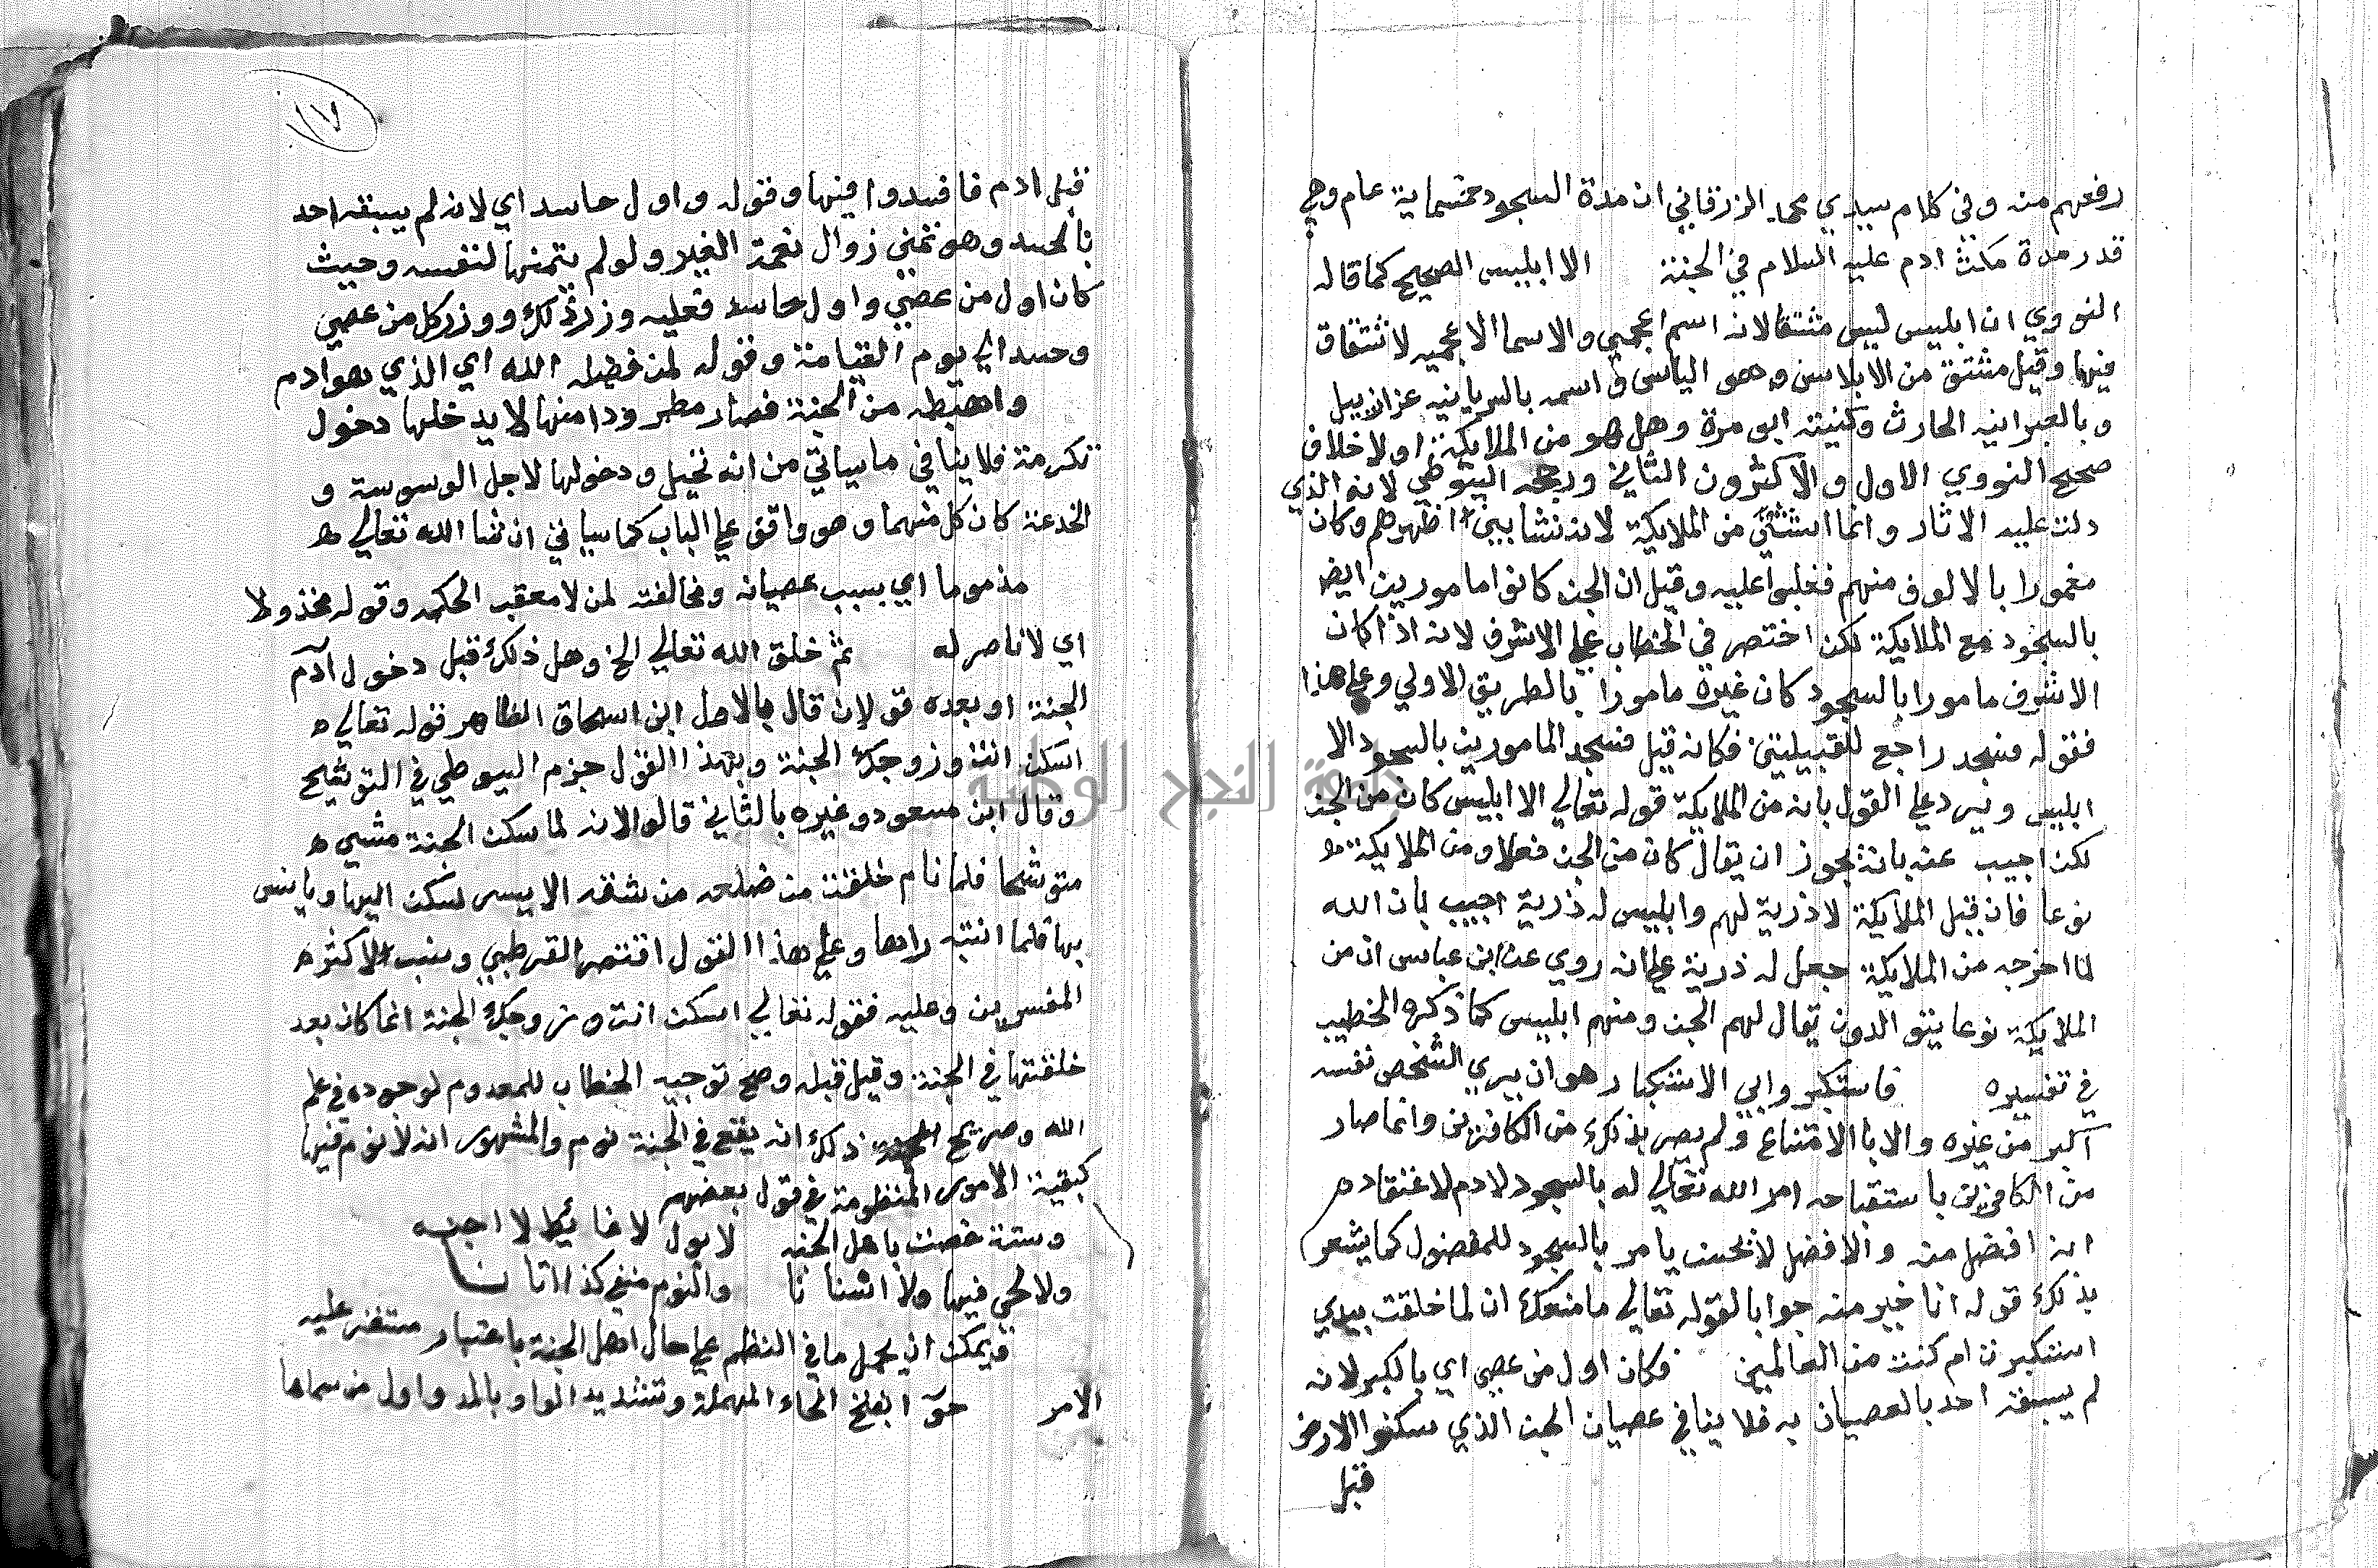 رفعهم منه وفي كلام سيدي محمد الزرقاني ان مدة السجود خمسماية عام وهي
قدر مدة مكث ادم عليه السلام في الجنة الا ابليس الصحيح كما قاله
النووي ان ابليس ليس مشتقا لانه اسم اعجمي والاسما الاعجميه لا اشتقاق
فيها وقيل مشتق من الابلاس وهو الياس واسمه بالسريانيه عزازيل
وبالعبرانيه الحارث وكنيته ابو مرة وهل هو من الملايكة او لا خلاف
صحح النووي الاول والاكثرون الثاني ورجحه السيوطي لانه الذي
دلت عليه الاثار وانما استثني من الملايكة لانه نشا بين اظهرهم وكان
مغمورا بالالوف منهم فغلبوا عليه وقيل ان الجن كانوا مامورين ايضا
بالسجود مع الملايكة لكن اختصر في الخطاب علي الاشرف لانه اذا كان
الاشرف مامورا بالسجود كان غيره مامورا بالطريق الاولي وعلي هذا
فقوله فسجد راجع للقبيلتين فكانه قيل فسجد المامورين بالسجود الا
ابليس ويرد علي القول بانه من الملايكة قوله تعالي الا ابليس كان من الجن
لكن اجيب عنه بانه يجوز ان يقال كان من الجن فعلا ومن الملايكة
نوعا فان قيل الملايكة لا ذرية لهم وابليس له ذرية اجيب بان الله
لما اخرجه من الملايكة جعل له ذرية علي انه روي عن ابن عباس ان من
الملايكة نوعا يتوالدون يقال لهم الجن ومنهم ابليس كما ذكره الخطيب
في تفسيره فاستكبر وابي الاستكبار هو ان يري الشخص نفسه
اكبر من غيره والابا الامتناع ولم يصر بذلك من الكافرين وانما صار
من الكافرين باستقباحه امر الله تعالي له بالسجود لادم لاعتقاده
انه افضل منه والافضل لا يحسن يامر بالسجود للمفضول كما يشعر
بذلك قوله انا خير منه جوابا لقوله تعالي ما منعك ان لما خلقت بيدي
استكبرت ام كنت من العالمين فكان اول من عصي اي بالكبر لانه
لم يسبقه احد بالعصيان به فلا ينافي عصيان الجن الذي سكنوا الارض
قبل
١٧
قبل ادم فافسدوا فيها وقوله واول حاسد اي لانه لم يسبقه احد
بالحسد وهو تمني زوال نعمة الغير ولو لم يتمنها لنفسه وحيث
كان اول من عصي واول حاسد فعليه وزر ذلك ووزر كل من عصي
وحسد الي يوم القيامة وقوله لمن فضله الله اي الذي هو ادم
واهبطه من الجنة فصار مطرودا منها لا يدخلها دخول
تكرمة فلا ينافي ما سياتي من انه تحيل ودخولها لاجل الوسوسة و
الخدعة كان كل منهما وهو واقف علي الباب كما سياتي ان شا الله تعالي
مذموما اي بسبب عصيانه ومخالفته لمن لا معقب لحكمه وقوله مخذولا
اي لا ناصر له ثم خلق الله تعالي الخ وهل ذلك قبل دخول آدم
الجنة او بعده قولان قال بالاول ابن اسحاق لظاهر قوله تعالي
اسكن انت وزوجك الجنة وبهذا القول جزم السيوطي في التوشيح
وقال ابن مسعود وغيره بالثاني قالوا لانه لما سكن الجنة مشي
متوحشا فلما نام خلقت من ضلعه من شقه الايسر لسكن اليها ويانس
بها فلما انتبه راها وعلي هذا القول اقتصر القرطبي ونسب لاكثر
المفسرين وعليه فقوله تعالي اسكن انت وزوجك الجنة انما كان بعد
خلقتها في الجنة وقيل قبله وصح توجيه الخطاب للمعدوم لوجوده في علم
الله وصريح ذلك انه يقع في الجنة نوم والمشهور انه لا نوم فيها
كبقية الامور المنظومة في قول بعضهم
وستة خصت باهل الجنه لا بول لا غائط لا اجنه
ولا لحي فيها ولا اسنانا والنوم منفي كذا اتانا
فيمكن ان يحمل ما في النظم علي حال اهل الجنة باعتبار مستقر عليه
الامر حوآ بفتح الحاء المهملة وتشديد الواو بالمد واول من سماها
جامعة النجاح الوطنية